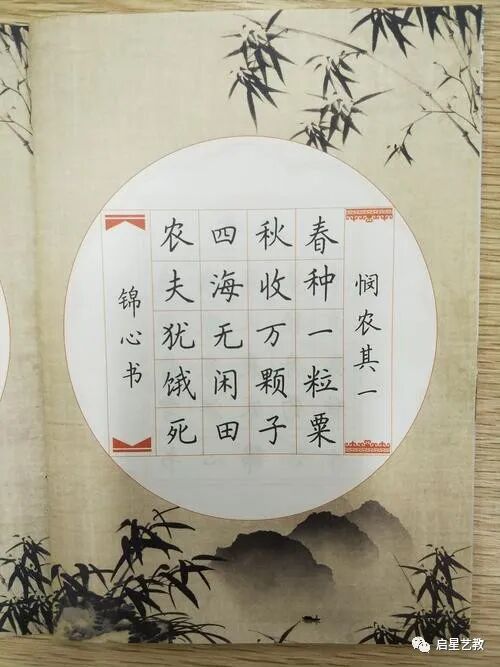 悯农其一
春种一粒粟
秋收万颗子
四海无闲田
农夫犹饿死
锦心书
启星艺教